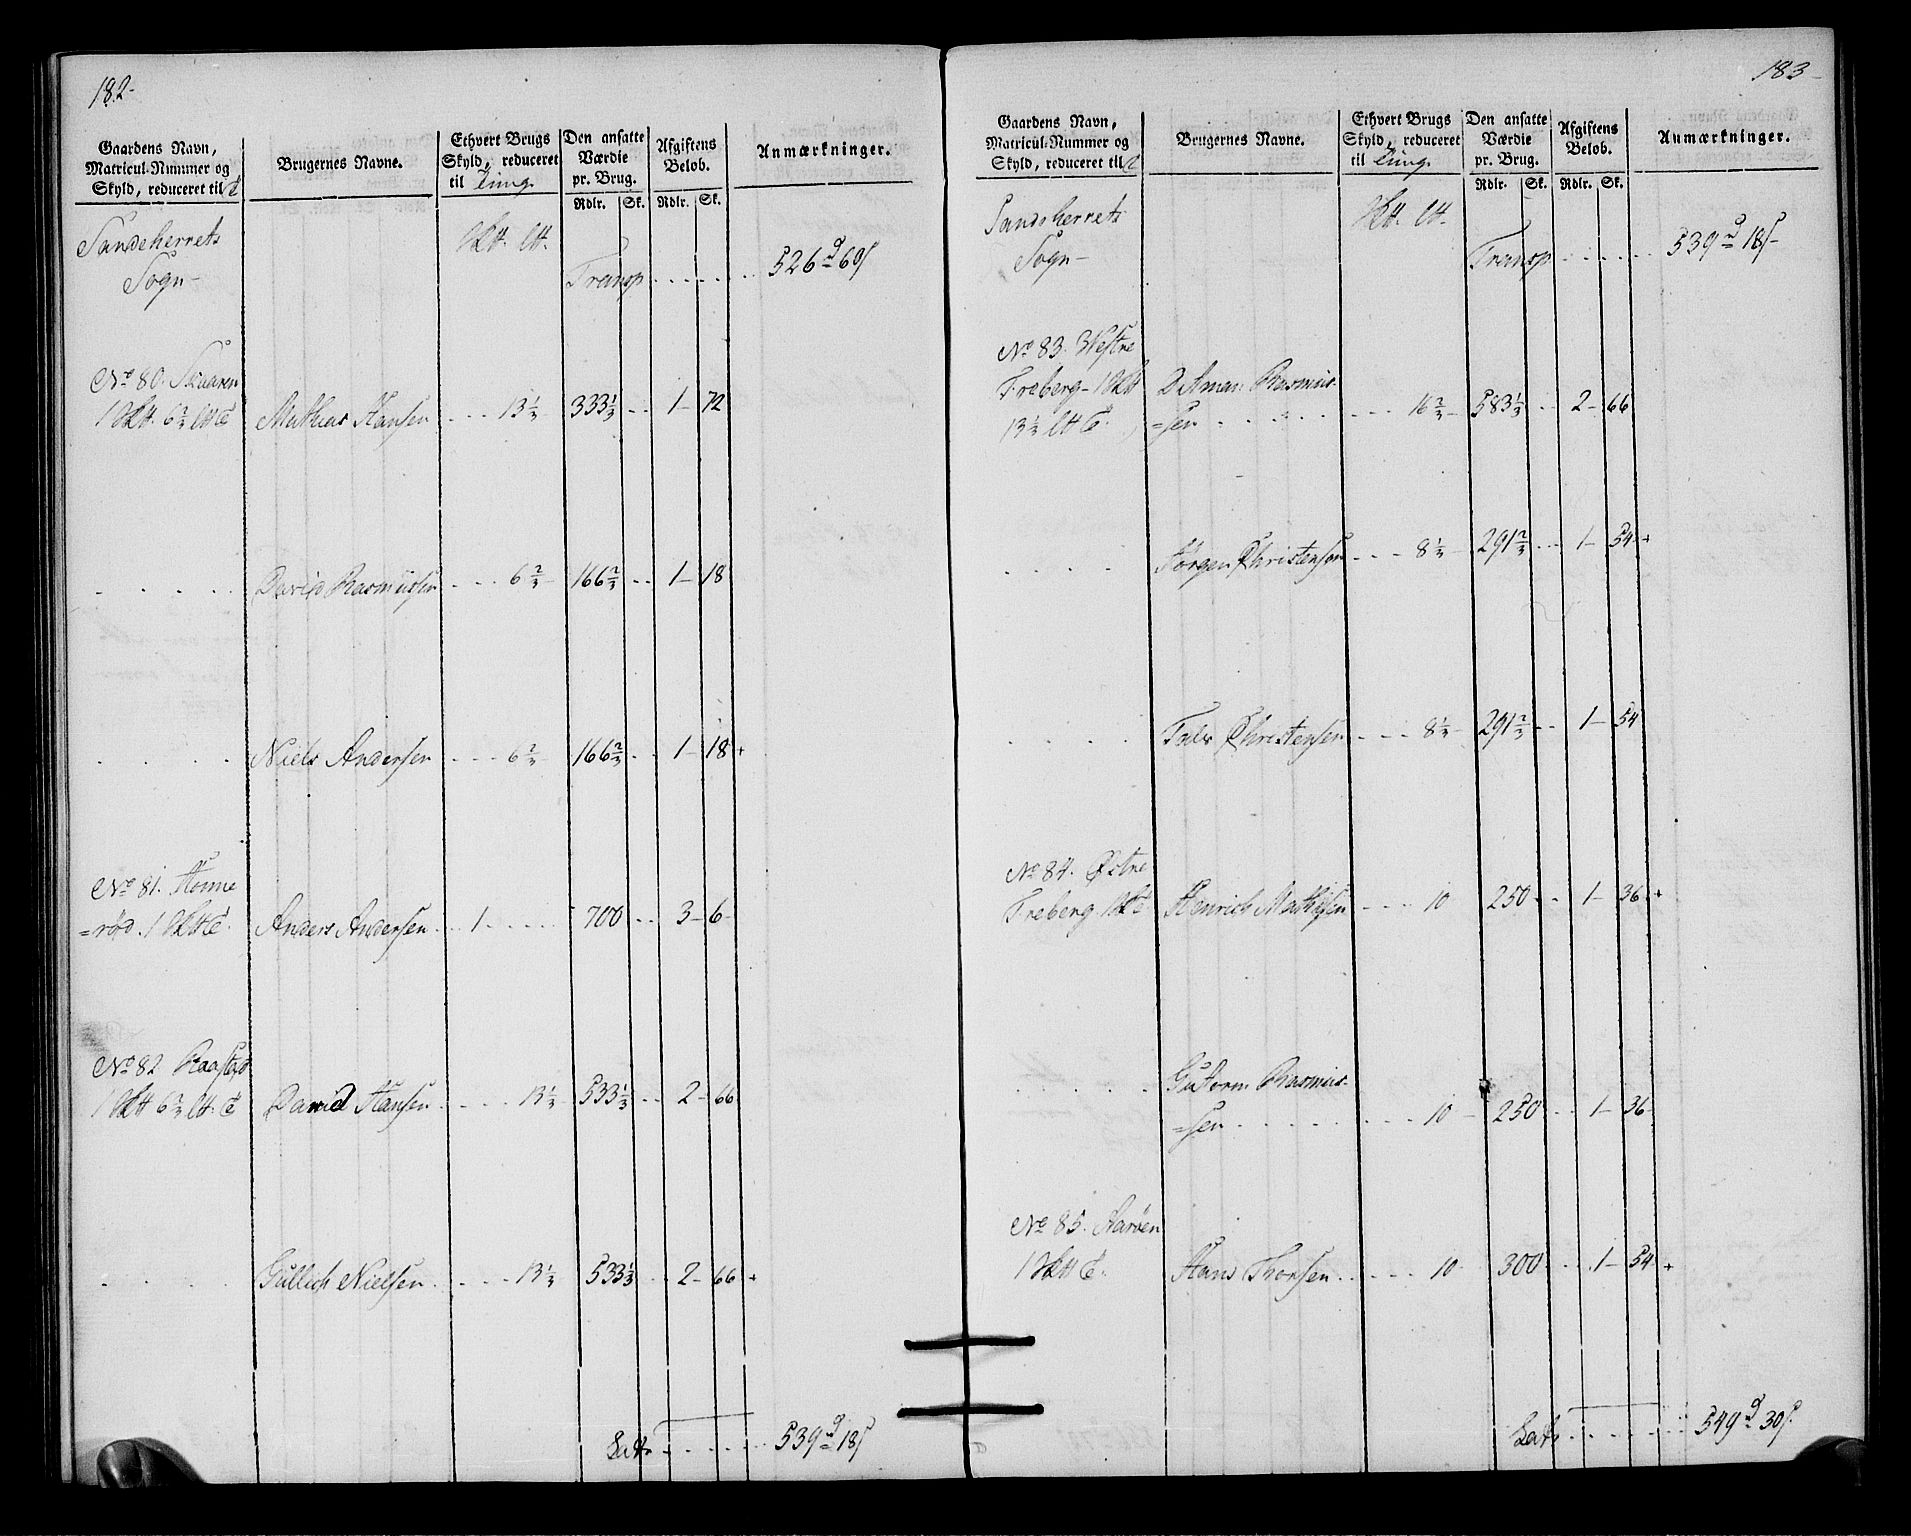 182-
Gaardens Navn,
Matricul-Nummer og
Skyld, reduceret til
Brugernes Navne.
Ethvert Brugs
Skyld, reduceret
til Tung.
Den ansatte
Værdie
pr. Brug.
Afgiftens
Beløb.
Anmærkninger.
Rdlr. Sk. Rdlr. Sk.
Sandeherrets
Sogn-
Transp ...... 526 d 60 s
No 80. Skaaren
1 6 2/3 Mathias Hansen ... 13 1/3 333 1/3 .. 1- 72
. . . . David Rasmussen ... 6 2/3 166 2/3 .. 1- 18
. . . . Niels Andersen ... 6 2/3 166 2/3 .. 1- 18 +
No 81. Honne
=rød. 1 Anders Andersen .. 1 .... 700 .. 3- 6-
No 82 Raastad
1 6 2/3 David Hansen .... 13 1/3 533 1/3 .. 2- 66
. . . . Gullich Nielsen .... 13 1/3 533 1/3 .. 2- 66 +
Lats ...... 539 d 18 s
183-
Gaardens Navn,
Matricul-Nummer og
Skyld, reduceret til
Brugernes Navne.
Ethvert Brugs
Skyld, reduceret
til Tung.
Den ansatte
Værdie
pr. Brug.
Afgiftens
Beløb.
Anmærkninger.
Rdlr. Sk. Rdlr. Sk.
Sandsherrets
Sogn-
Transp ...... 539 d 18 s-
No 83. Westre
Freberg- 1 Ditman Rasmus-
13 1/3 =sen ...... 16 2/3 583 1/3 .. 2- 66
. . . . Jørgen Christensen ... 8 1/3 291 2/3 .. 1- 54 +
. . . . Fales Christensen ... 8 1/3 291 2/3 .. 1- 54
No 84. Østre
Freberg. 1 Henrich Mathisen ... 10 250 .. 1- 36 +
. . . . Gutorm Rasmus-
=sen ........ 10 - 250 .. 1- 36
No 85. Aarøen
1 Hans Thorsen ..... 10 300 .. 1- 54 +
Lats ...... 549 d 30 s.